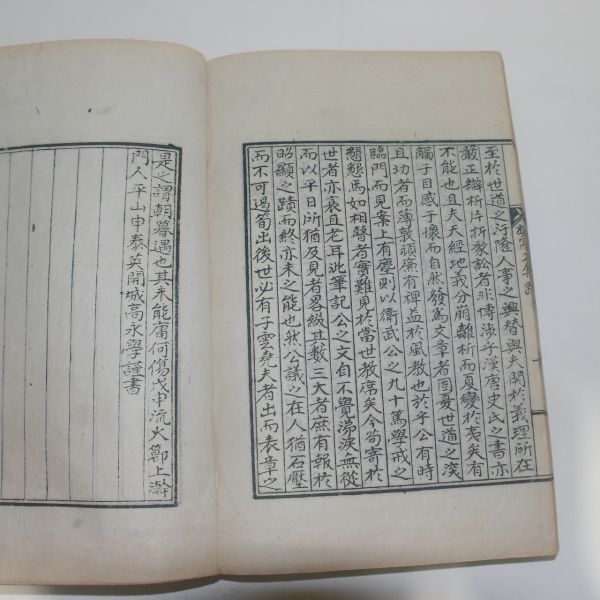 至於世道之汙隆人事之興替與夫關於義理所在
嚴正辯析片折衆訟者非博涉乎漢唐史氏之書亦
不能也且夫天經地義分崩離析而夏變於夷矣有
觸于目感于懷而自然發爲文章者固憂世道之深
且功者而薄敦頑廉有裨益於風教也於乎公有時
臨門而見案上有塵則以衛武公之九十篤學戒之
懇懇焉如相替者實難見於當世教席矣今苟寄於
世者亦衰且老耳此筆記公之文自不覺涕淚無從
而以平日所猶及見者畧綴其數三大者庶有報於
昭顯之蹟而終亦未之能也然公議之在人猶石壓
而不可遏筍出後世必有子雲堯夫者出而表章之
是之謂朝暮遇也其未能庸何傷戊申流火鄭上澣
門人平山申泰英開城高永學謹書